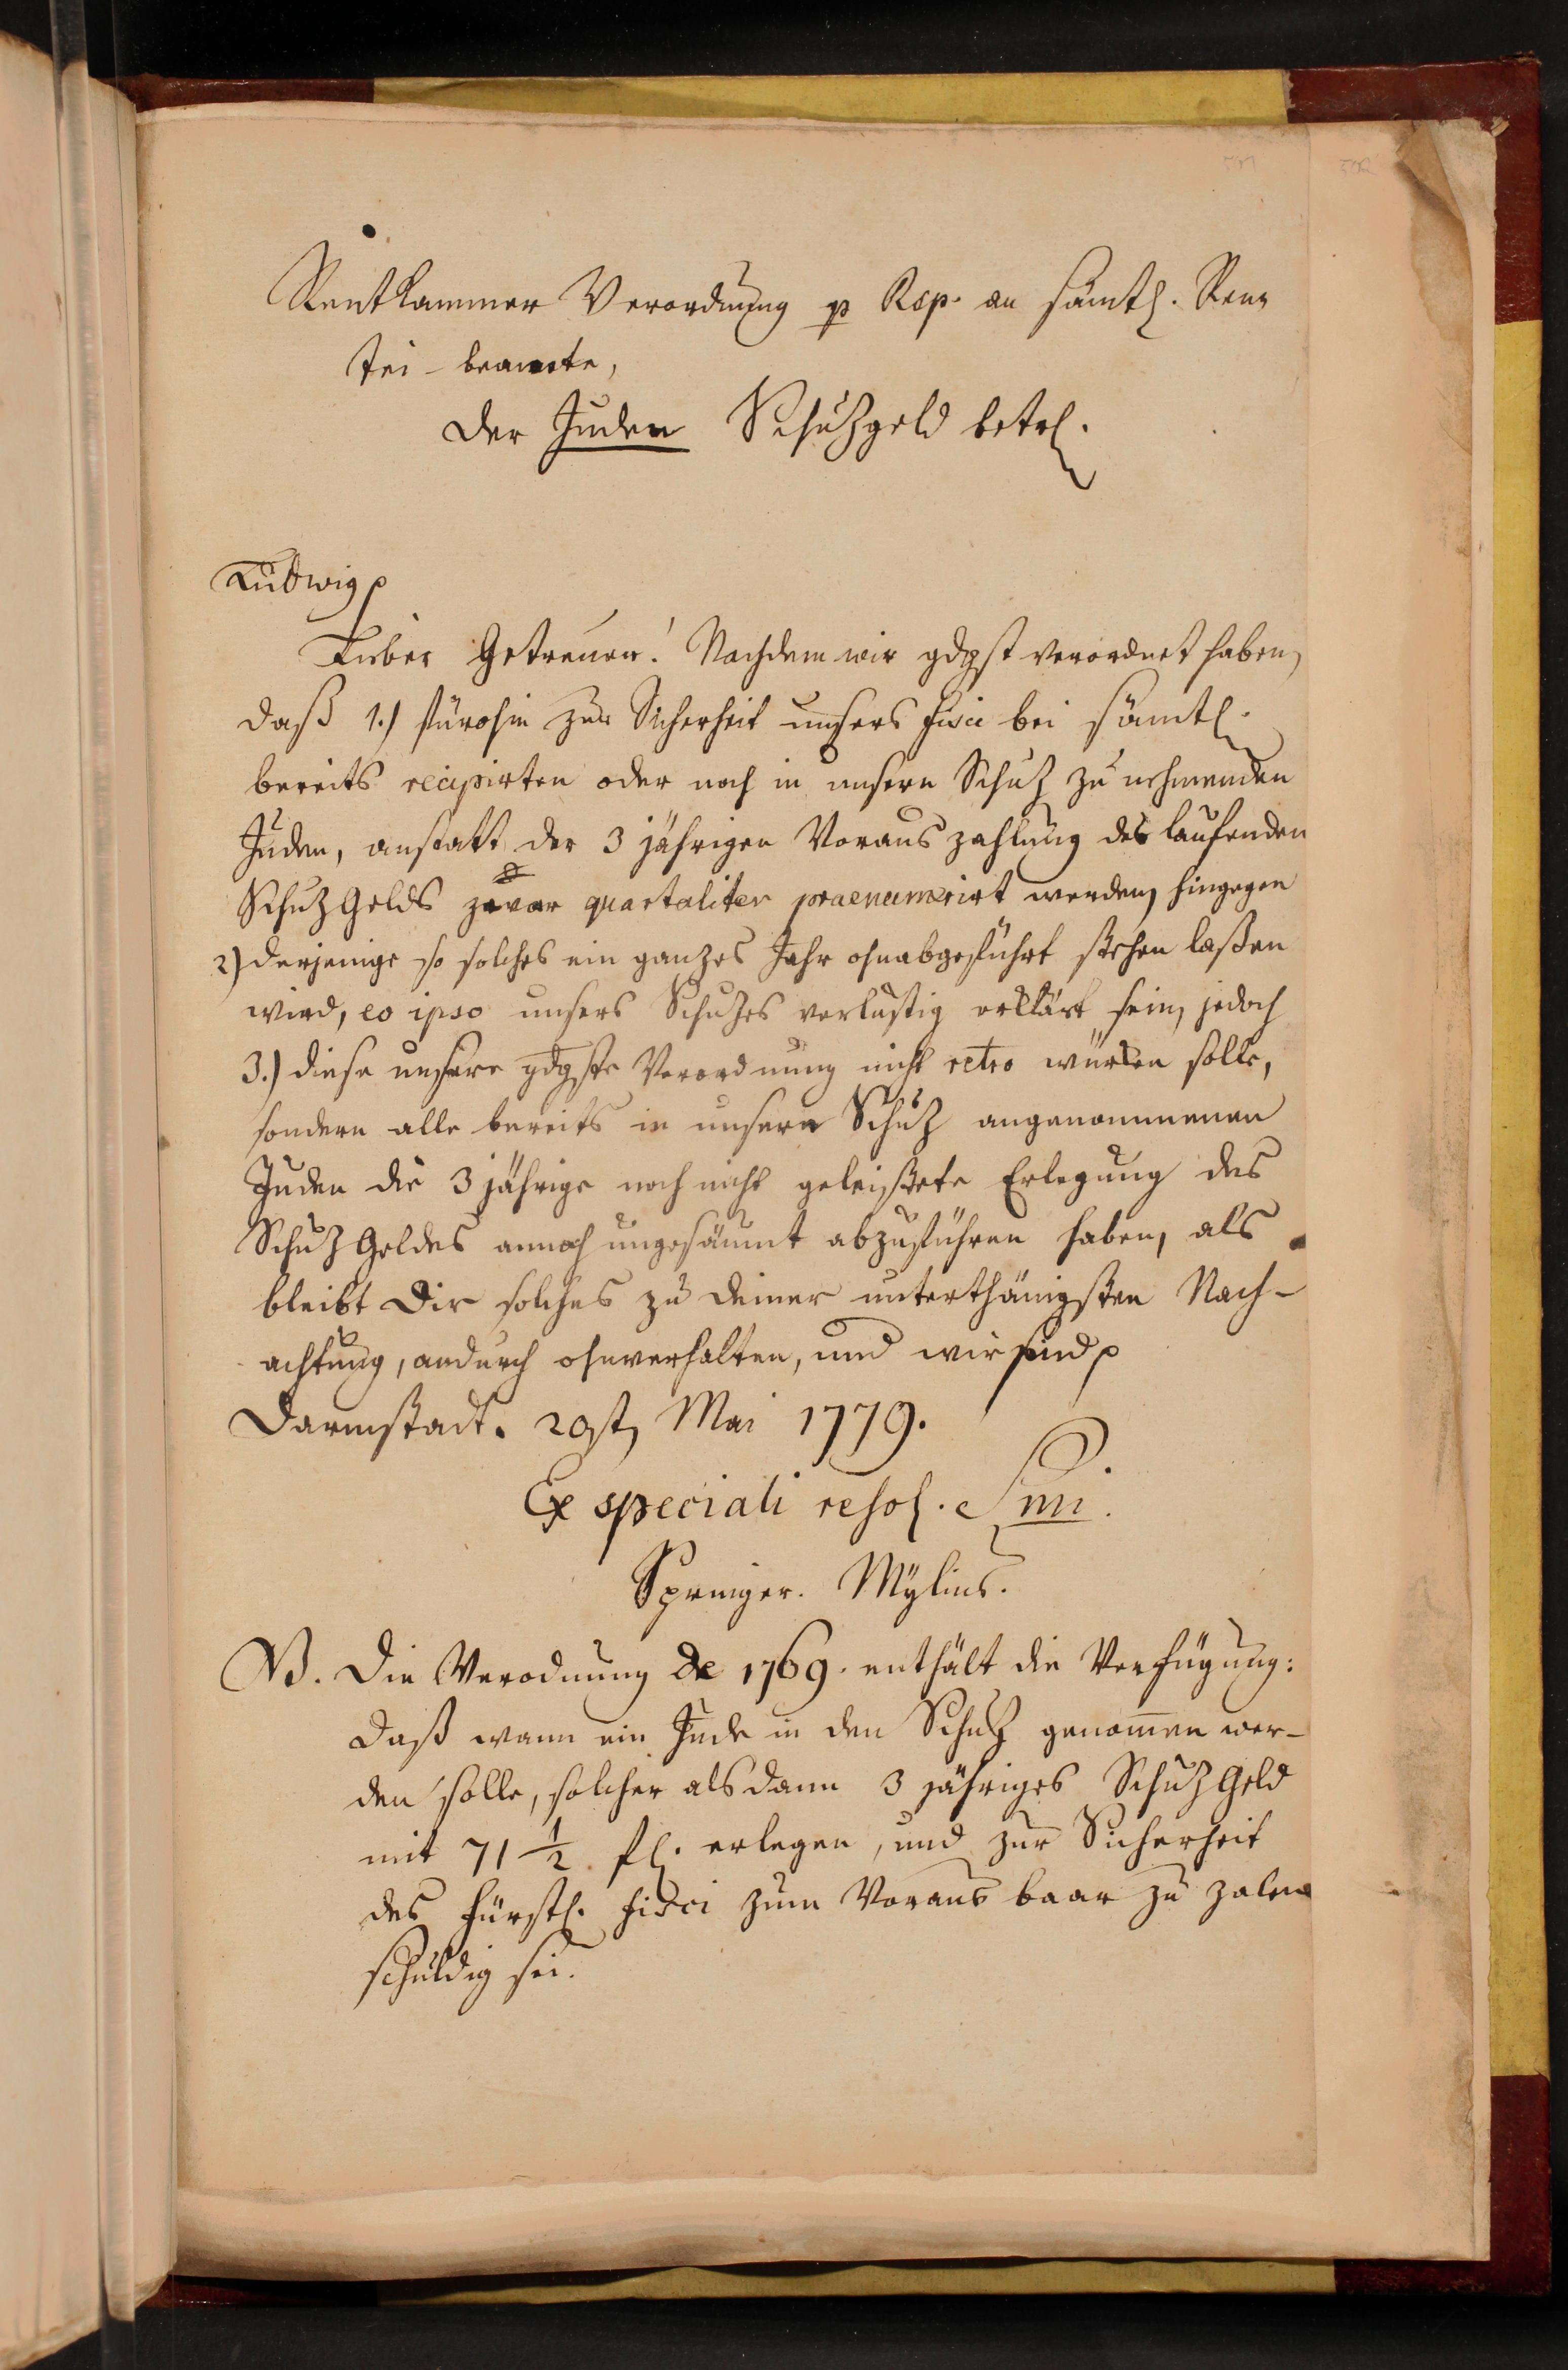 Rentkammer Verordnung p Rsp. an sämtl. Ren
tei-beamte,
der Juden Schuzgeld betrl.
Ludwig p
Lieber Getreuer! Nachdem wir gdgst verordnet haben,
daß 1.) fürohin zur Sicherheit unsers fisci bei sämtl.
bereits recipirten oder noch in unsern Schuz zu nehmenden
Juden, anstatt der 3 jährigen Voraus zahlung des laufenden
SchuzGelds zwar quartaliter praenumerirt werden, hingegen
2) derjenige so solches ein ganzes Jahr ohnabgeführt stehen laßen
wird, eo ipso unsers Schuzes verlustig erklärt sein, jedoch
3.) diese unsere gdgste Verordnung nicht retro würken solle,
sondern alle bereits in unsern Schuz angenommenen
Juden die 3 jährige noch nicht geleistete Erlegung des
SchuzGeldes annoch ungesäumt abzuführen haben, als
bleibt Dir solches zu deiner unterthänigsten Nach-
achtung, andurch ohnverhalten, und wir sind p
Darmstadt. 20st, Mai 1779.
Ex speciali resol. Smi.
Sprenger. Mylius.
NB. Die Verodnung de 1769. enthält die Verfügung:
daß wann ein Jude in den Schuz genommen wer-
den solle, solcher alsdann 3 jähriges SchuzGeld
mit 71 1/2 fl. erlegen, und zur Sicherheit
des fürstl. fisci zum Voraus baar zu zalen
schuldig sei.